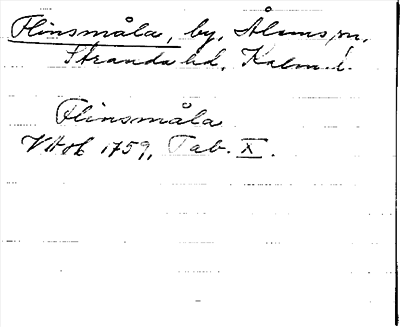 Flinsmåla, by, Ålems sn,
Stranda hd, Kalm. l.
Flinsmåla
1759, Tab. X.